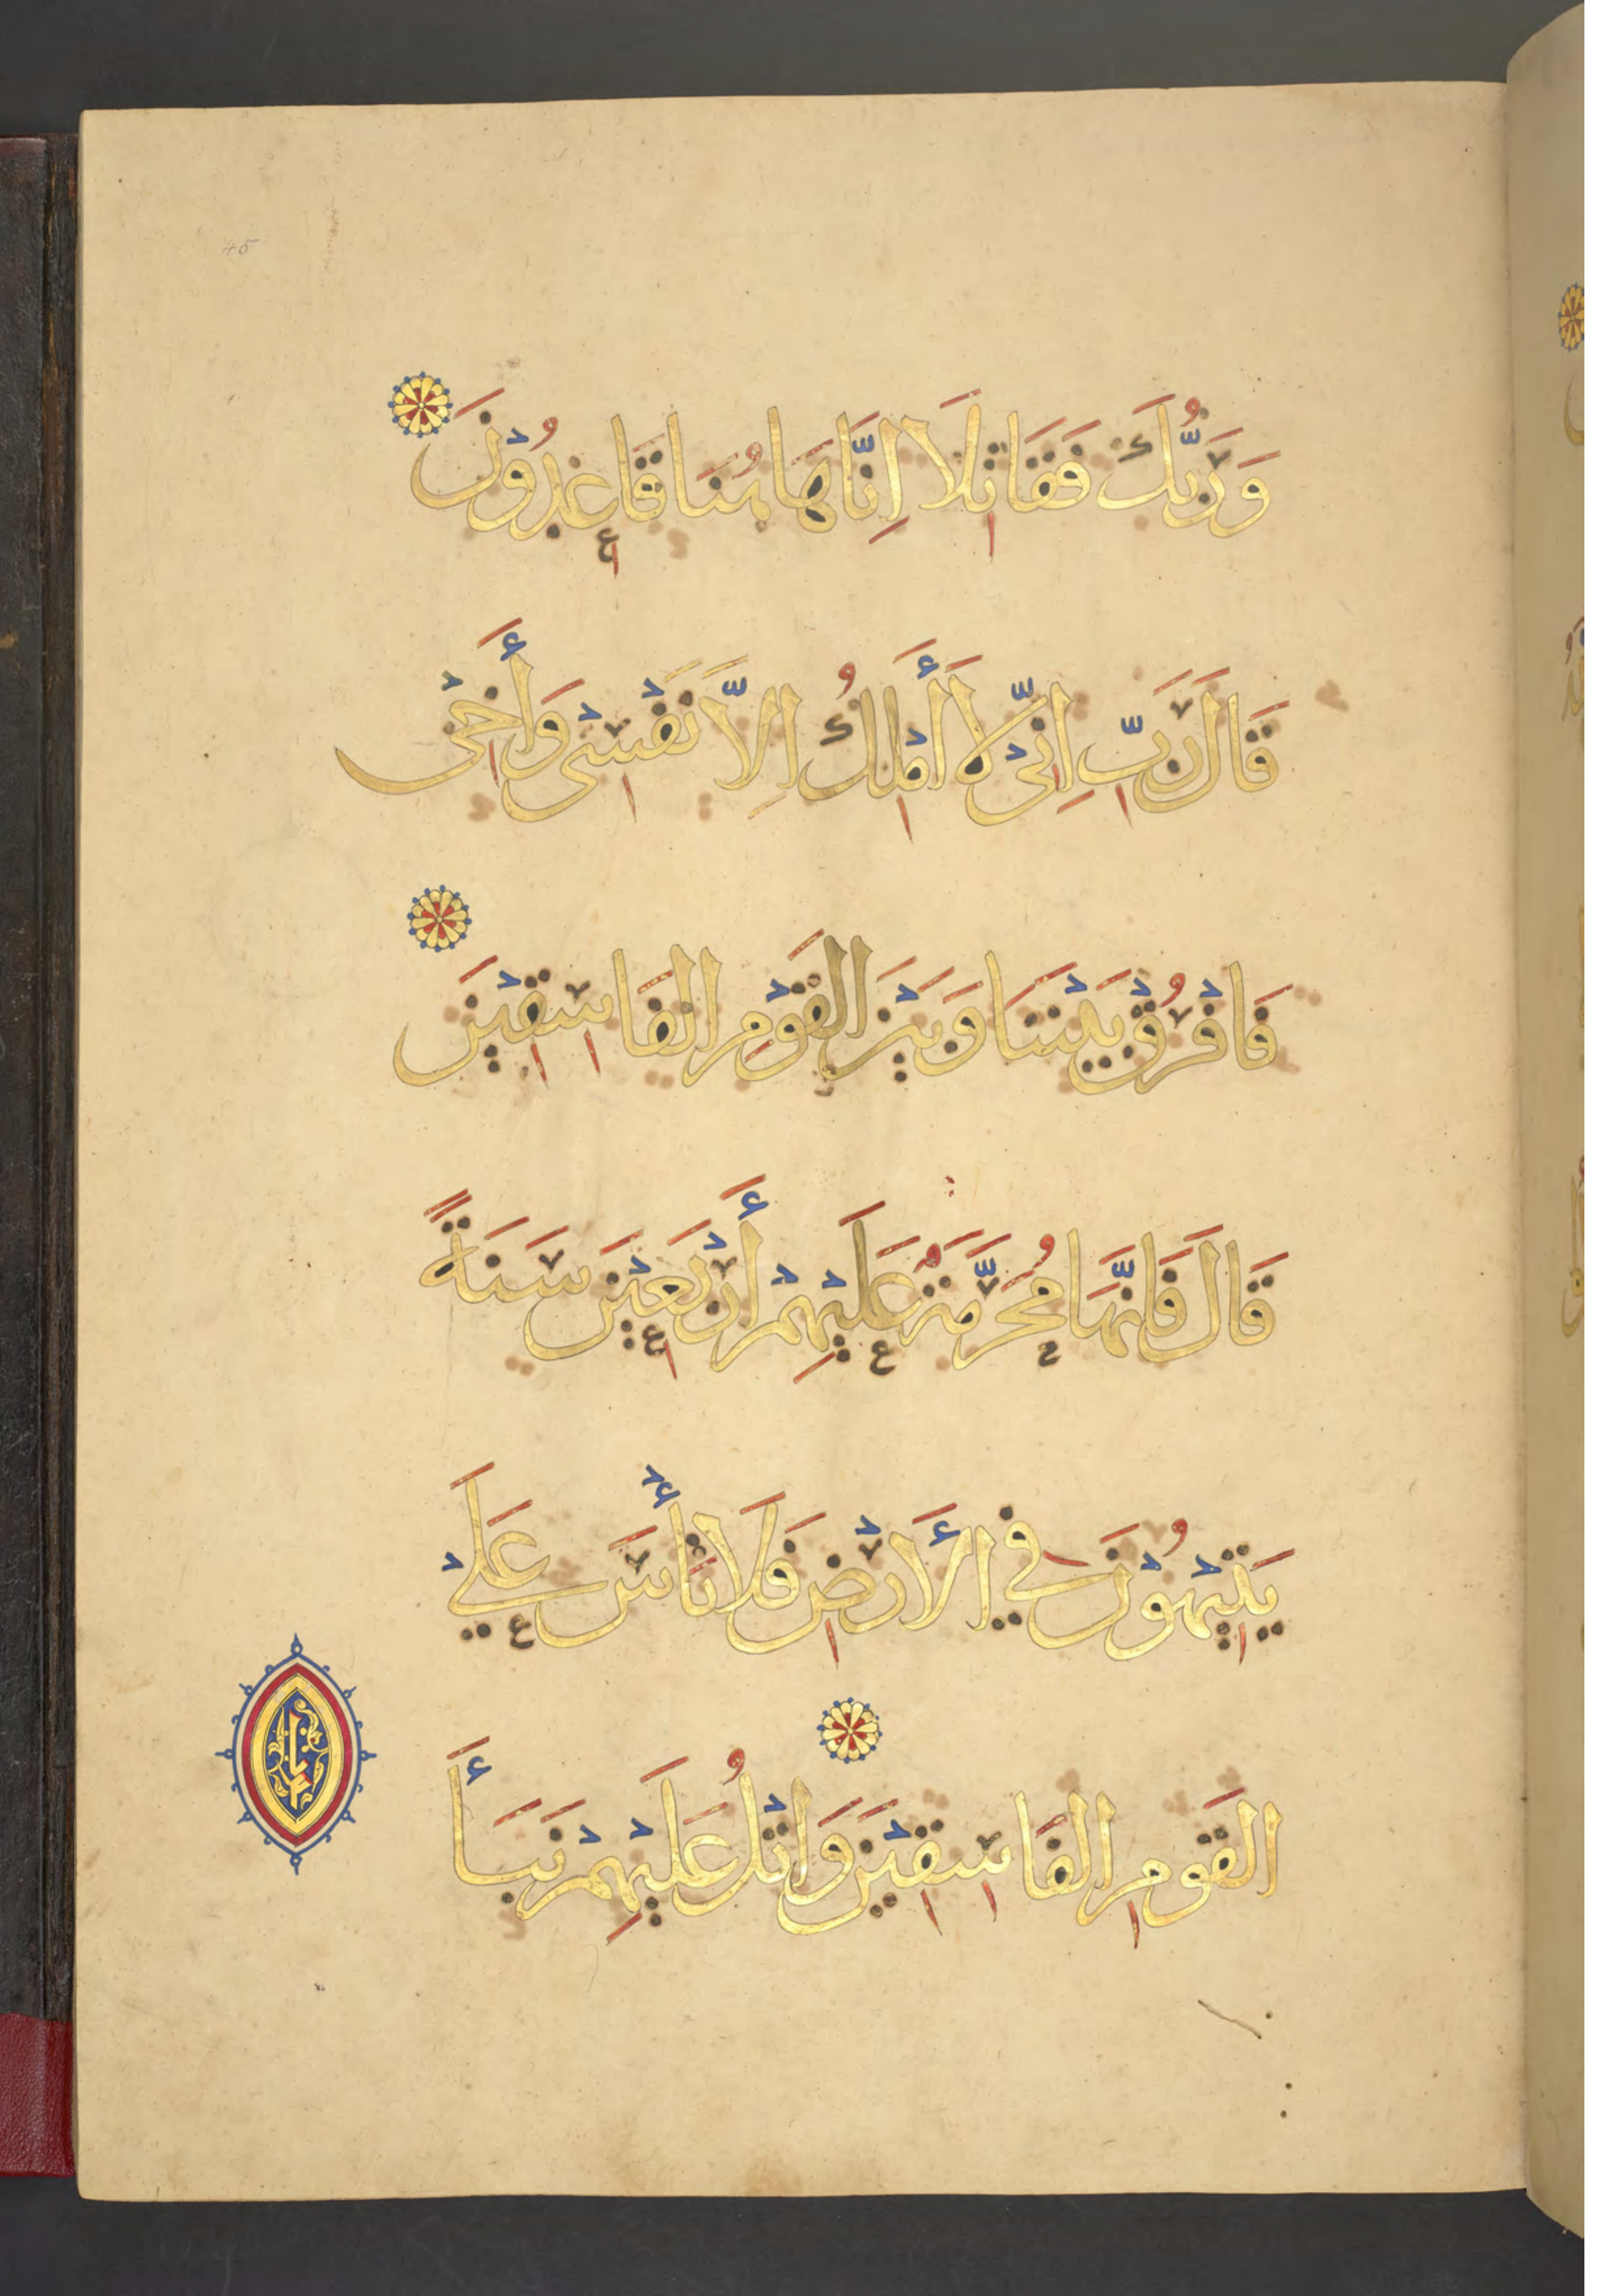 45
وَرَبُّكَ فَقَاتِلَا اِنَّا هَاهُنَا قَاعِدُوْنَ
قَالَ رَبِّ اِنِّيْ لَا أَمْلِكُ اِلَّا نَفْسِيْ وَأَخِيْ
فَافْرُقْ بَيْنَنَا وَبَيْنَ القَوْمِ الفَاسِقِيْنَ
قَالَ فَاِنَّهَا مُحَرَّمَةٌ عَلَيْهِمْ أَرْبَعِيْنَ سَنَةً
يَتِيْهُوْنَ فِي الأَرْضِ فَلَا تَأْسَ عَلَىْ
القَوْمِ الفَاسِقِيْنَ وَاتْلُ عَلَيْهِمْ نَبَأَ